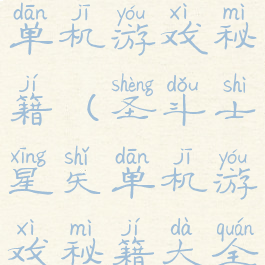 dān jī yóu xì mì
单机游戏秘
jí shèng dǒu shì
籍(圣斗士
xīng shǐ dān jī yóu
星矢单机游
xì mì jí dà quán
戏秘籍大全